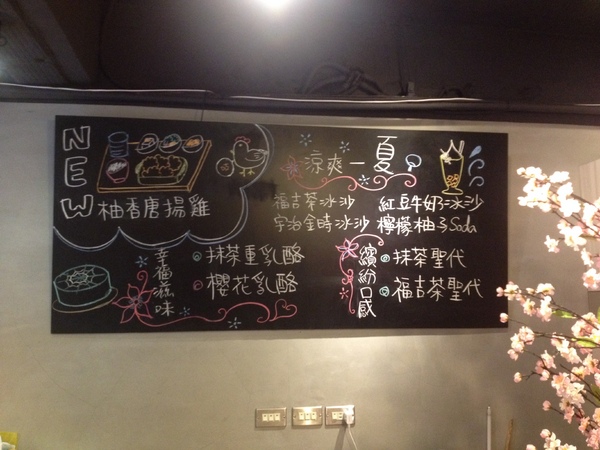 NEW
柚香唐揚雞
涼爽一夏
福吉茶冰沙 紅豆牛奶冰沙
宇治金時冰沙 檸檬柚子Soda
幸福滋味
抹茶重乳酪
櫻花乳酪
繽紛口感
抹茶聖代
福吉茶聖代